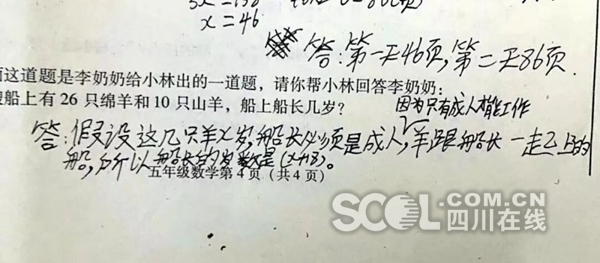 x=46
答:第一天46页,第二天86页.
这道题是李奶奶给小林出的一道题,请你帮小林回答李奶奶:
船上有 26 只绵羊和 10 只山羊,船上船长几岁?
因为只有成人才能工作
答:假设这几只羊x岁,船长必须是成人,羊跟船长一起上的
船,所以船长的岁数是(x+18)。
五年级数学第 4 页(共 4 页)
SCOL.COM.CN
四川在线